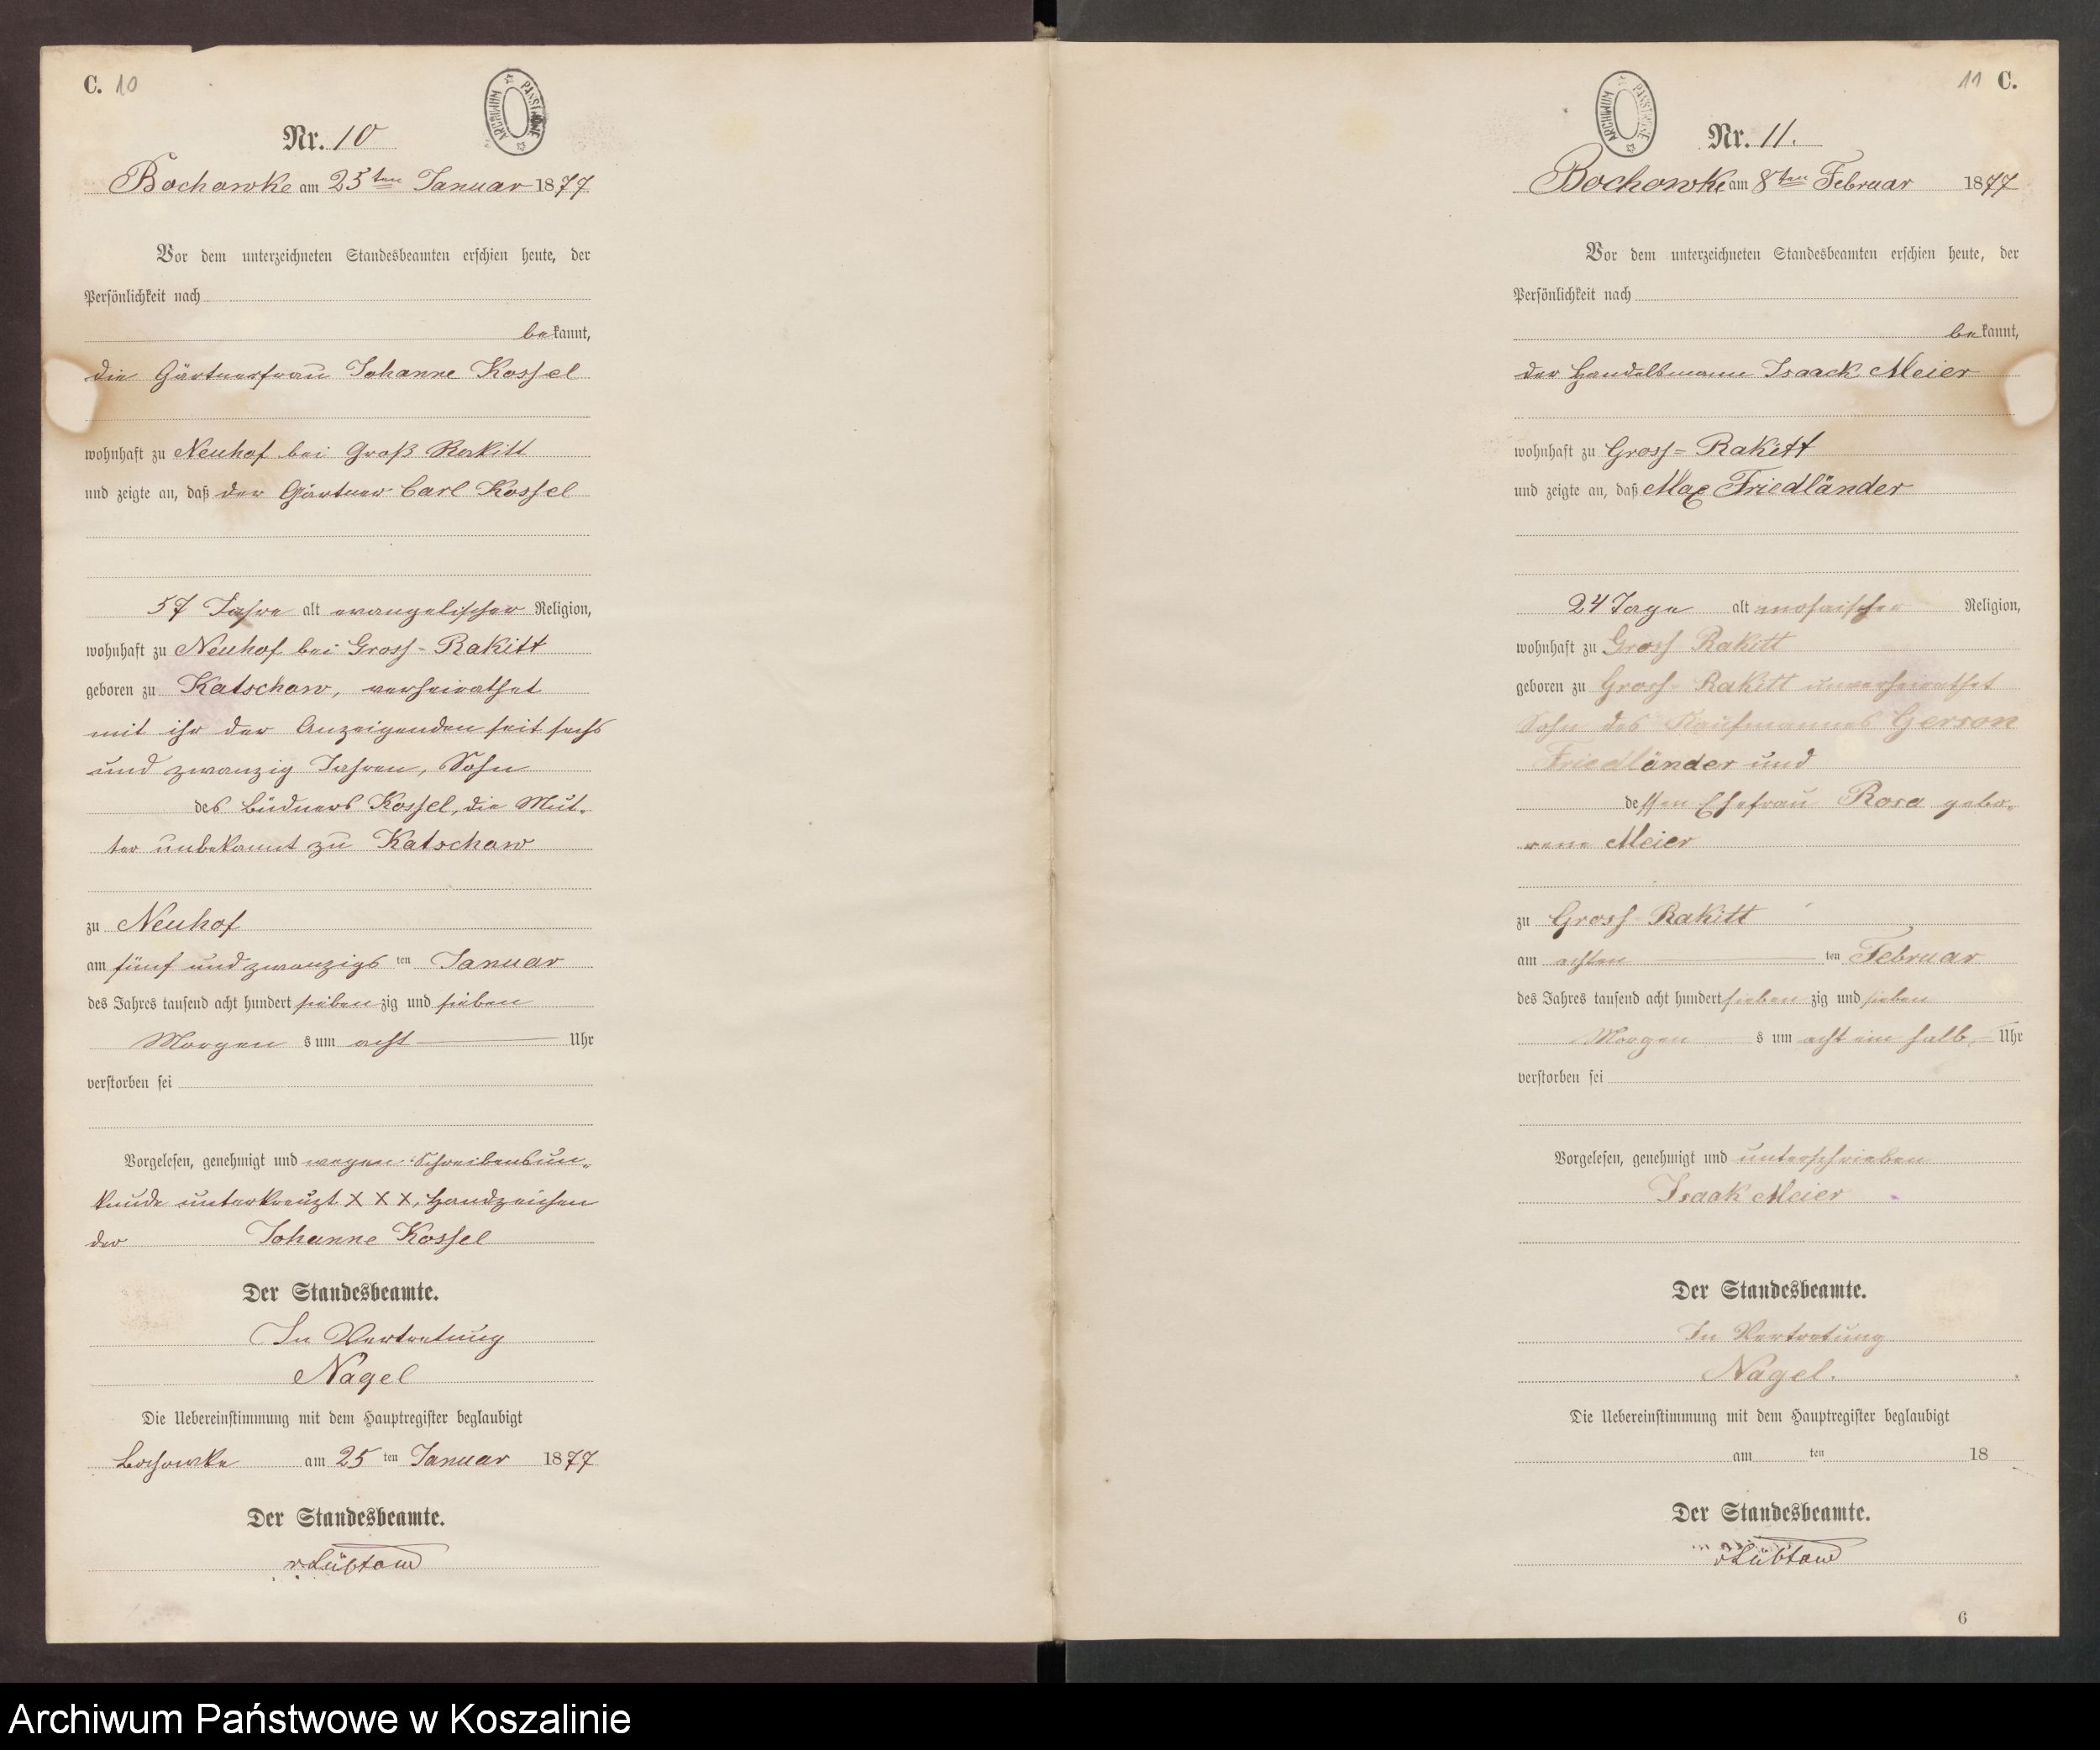 C. 10
ARCHIWUM PAŃSTWOWE
Nr. 10
Bochowke am 25ten Januar 1877
Vor dem unterzeichneten Standesbeamten erschien heute, der
Persönlichkeit nach
bekannt,
die Gärtnerfrau Johanne Kossel
wohnhaft zu Neuhof bei Groß Rakitt
und zeigte an, daß der Gärtner Carl Kossel
57 Jahre alt evangelischer Religion,
wohnhaft zu Neuhof bei Gross-Rakitt
geboren zu Katschow, verheirathet
mit ihr der Anzeigenden seit sechs
und zwanzig Jahren, Sohn
des Büdners Kossel, die Mut-
ter unbekannt zu Katschow
zu Neuhof
am fünf und zwanzigs ten Januar
des Jahres tausend acht hundert sieben zig und sieben
Morgen s um acht Uhr
verstorben sei
Vorgelesen, genehmigt und wegen Schreibensun-
kunde unterkreuzt X X X, Handzeichen
der Johanne Kossel
Der Standesbeamte.
In Vertretung
Nagel
Die Uebereinstimmung mit dem Hauptregister beglaubigt
Bochowke am 25 ten Januar 1877
Der Standesbeamte.
v Lübtow
11 C.
ARCHIWUM PAŃSTWOWE
Nr. 11.
Bochowke am 8ten Februar 1877
Vor dem unterzeichneten Standesbeamten erschien heute, der
Persönlichkeit nach
bekannt,
der Handelsmann Isaack Meier
wohnhaft zu Gross-Rakitt
und zeigte an, daß Max Friedländer
24 Tage alt mosaischer Religion,
wohnhaft zu Gross Rakitt
geboren zu Gross-Rakitt unverheirathet
Sohn des Kaufmannes Gerson
Friedländer und
dessen Ehefrau Rosa gebo-
rene Meier
zu Gross-Rakitt
am achten ten Februar
des Jahres tausend acht hundert sieben zig und sieben
Morgen s um acht ein halb Uhr
verstorben sei
Vorgelesen, genehmigt und unterschrieben
Isaak Meier
Der Standesbeamte.
In Vertretung
Nagel.
Die Uebereinstimmung mit dem Hauptregister beglaubigt
am ten 18
Der Standesbeamte.
v Lübtow
6
Archiwum Państwowe w Koszalinie